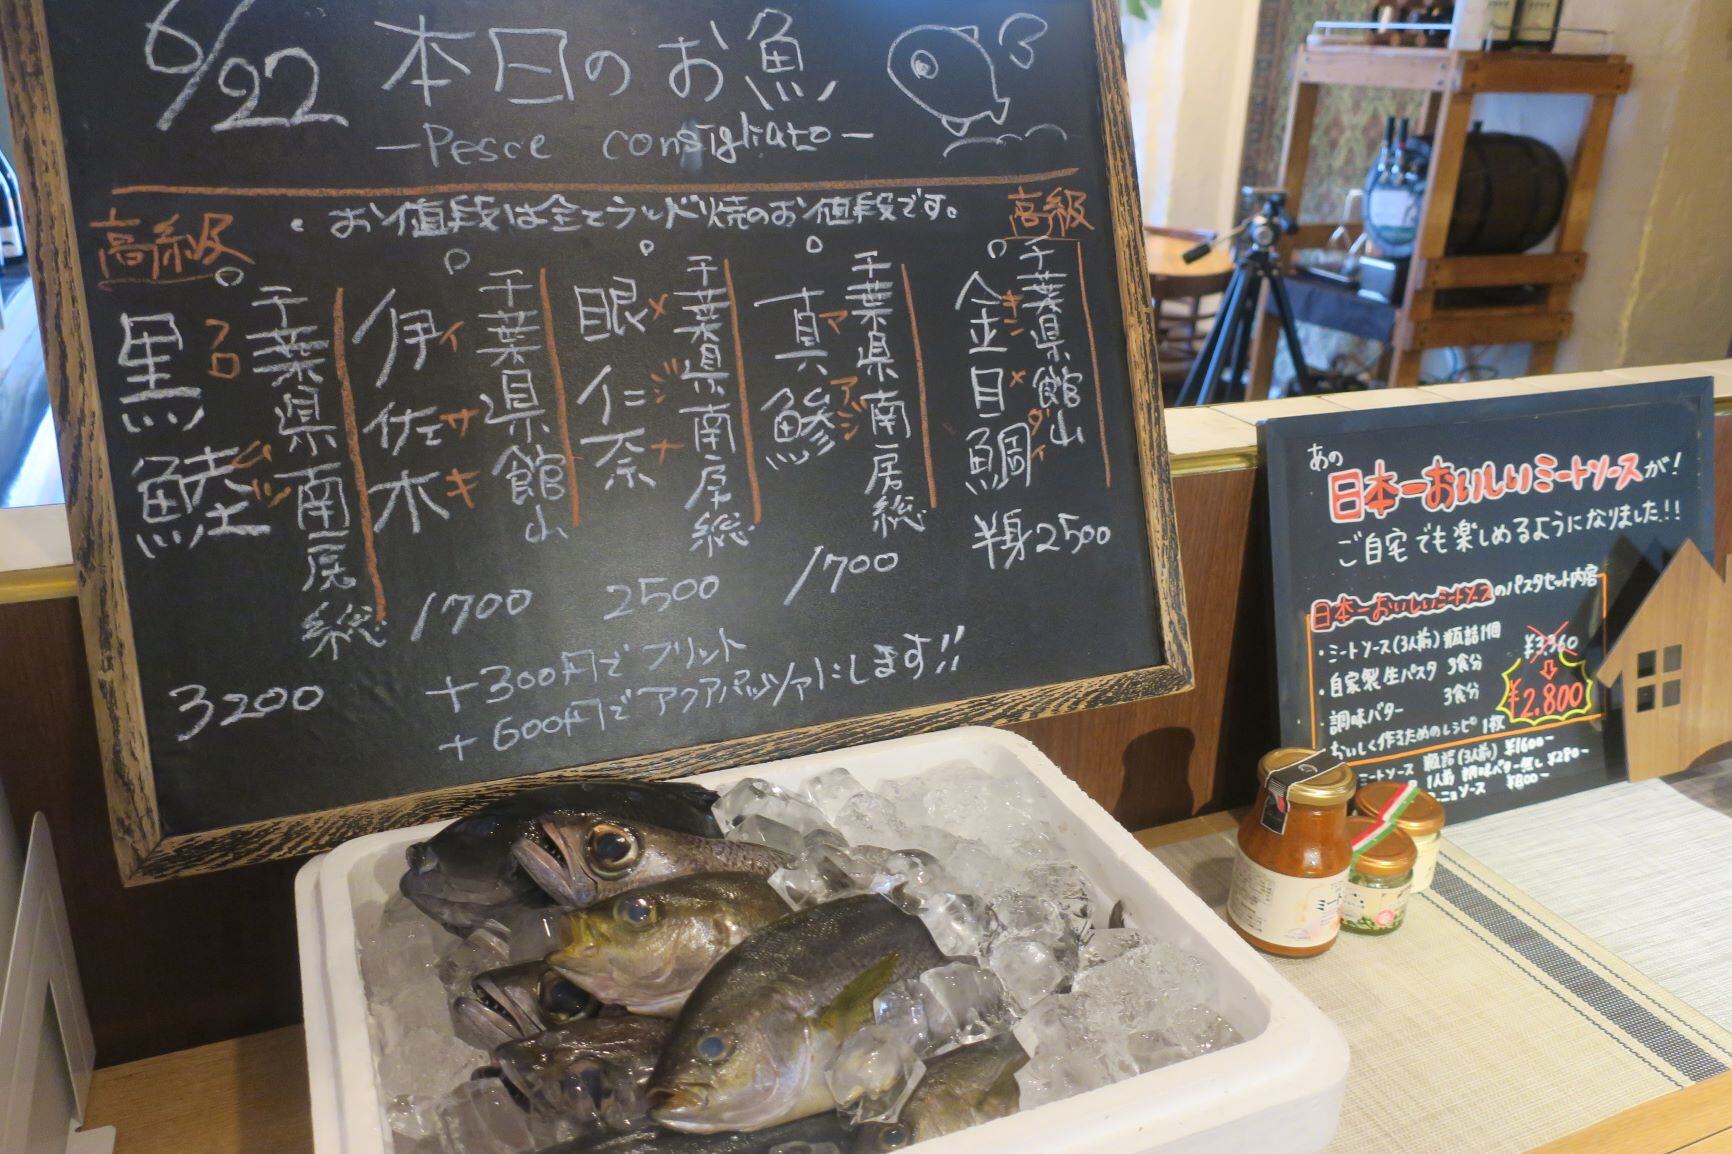 6/22 本日のお魚
-Pesce consigliato-
・お値段は全てランド焼のお値段です。
高級
千葉県館山
金目鯛
キンメダイ
半身2500
千葉県南房総
真鯵
マアジ
1700
千葉県南房総
眼仁奈
メジナ
2500
千葉県館山
伊佐木
イサキ
1700
高級
千葉県南房総
黒鯥
クロムツ
3200
+300円でフリット
+600円でアクアパッツァにします!!
あの
日本一おいしいミートソースが!
ご自宅でも楽しめるようになりました!!
日本一おいしいミートソースのパスタセット内容
・ミートソース(3人前)瓶詰1個
・自家製生パスタ 3食分
・調味バター 3食分
おいしく作るためのレシピ 1枚
¥3,360
⇩
¥2,800
ミートソース 瓶詰(3人前) ¥1600~
1人前 調味バター無し ¥280~
ソース ¥800~
ミート